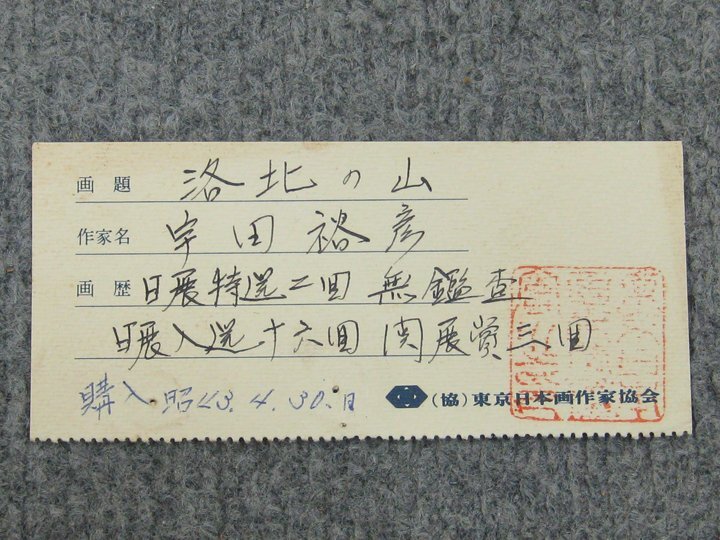 画題 洛北の山
作家名 宇田裕彦
画歴 日展特選二回 無鑑査
日展入選十六回 関展賞三回
購入 昭43.4.30.日
(協)東京日本画作家協会